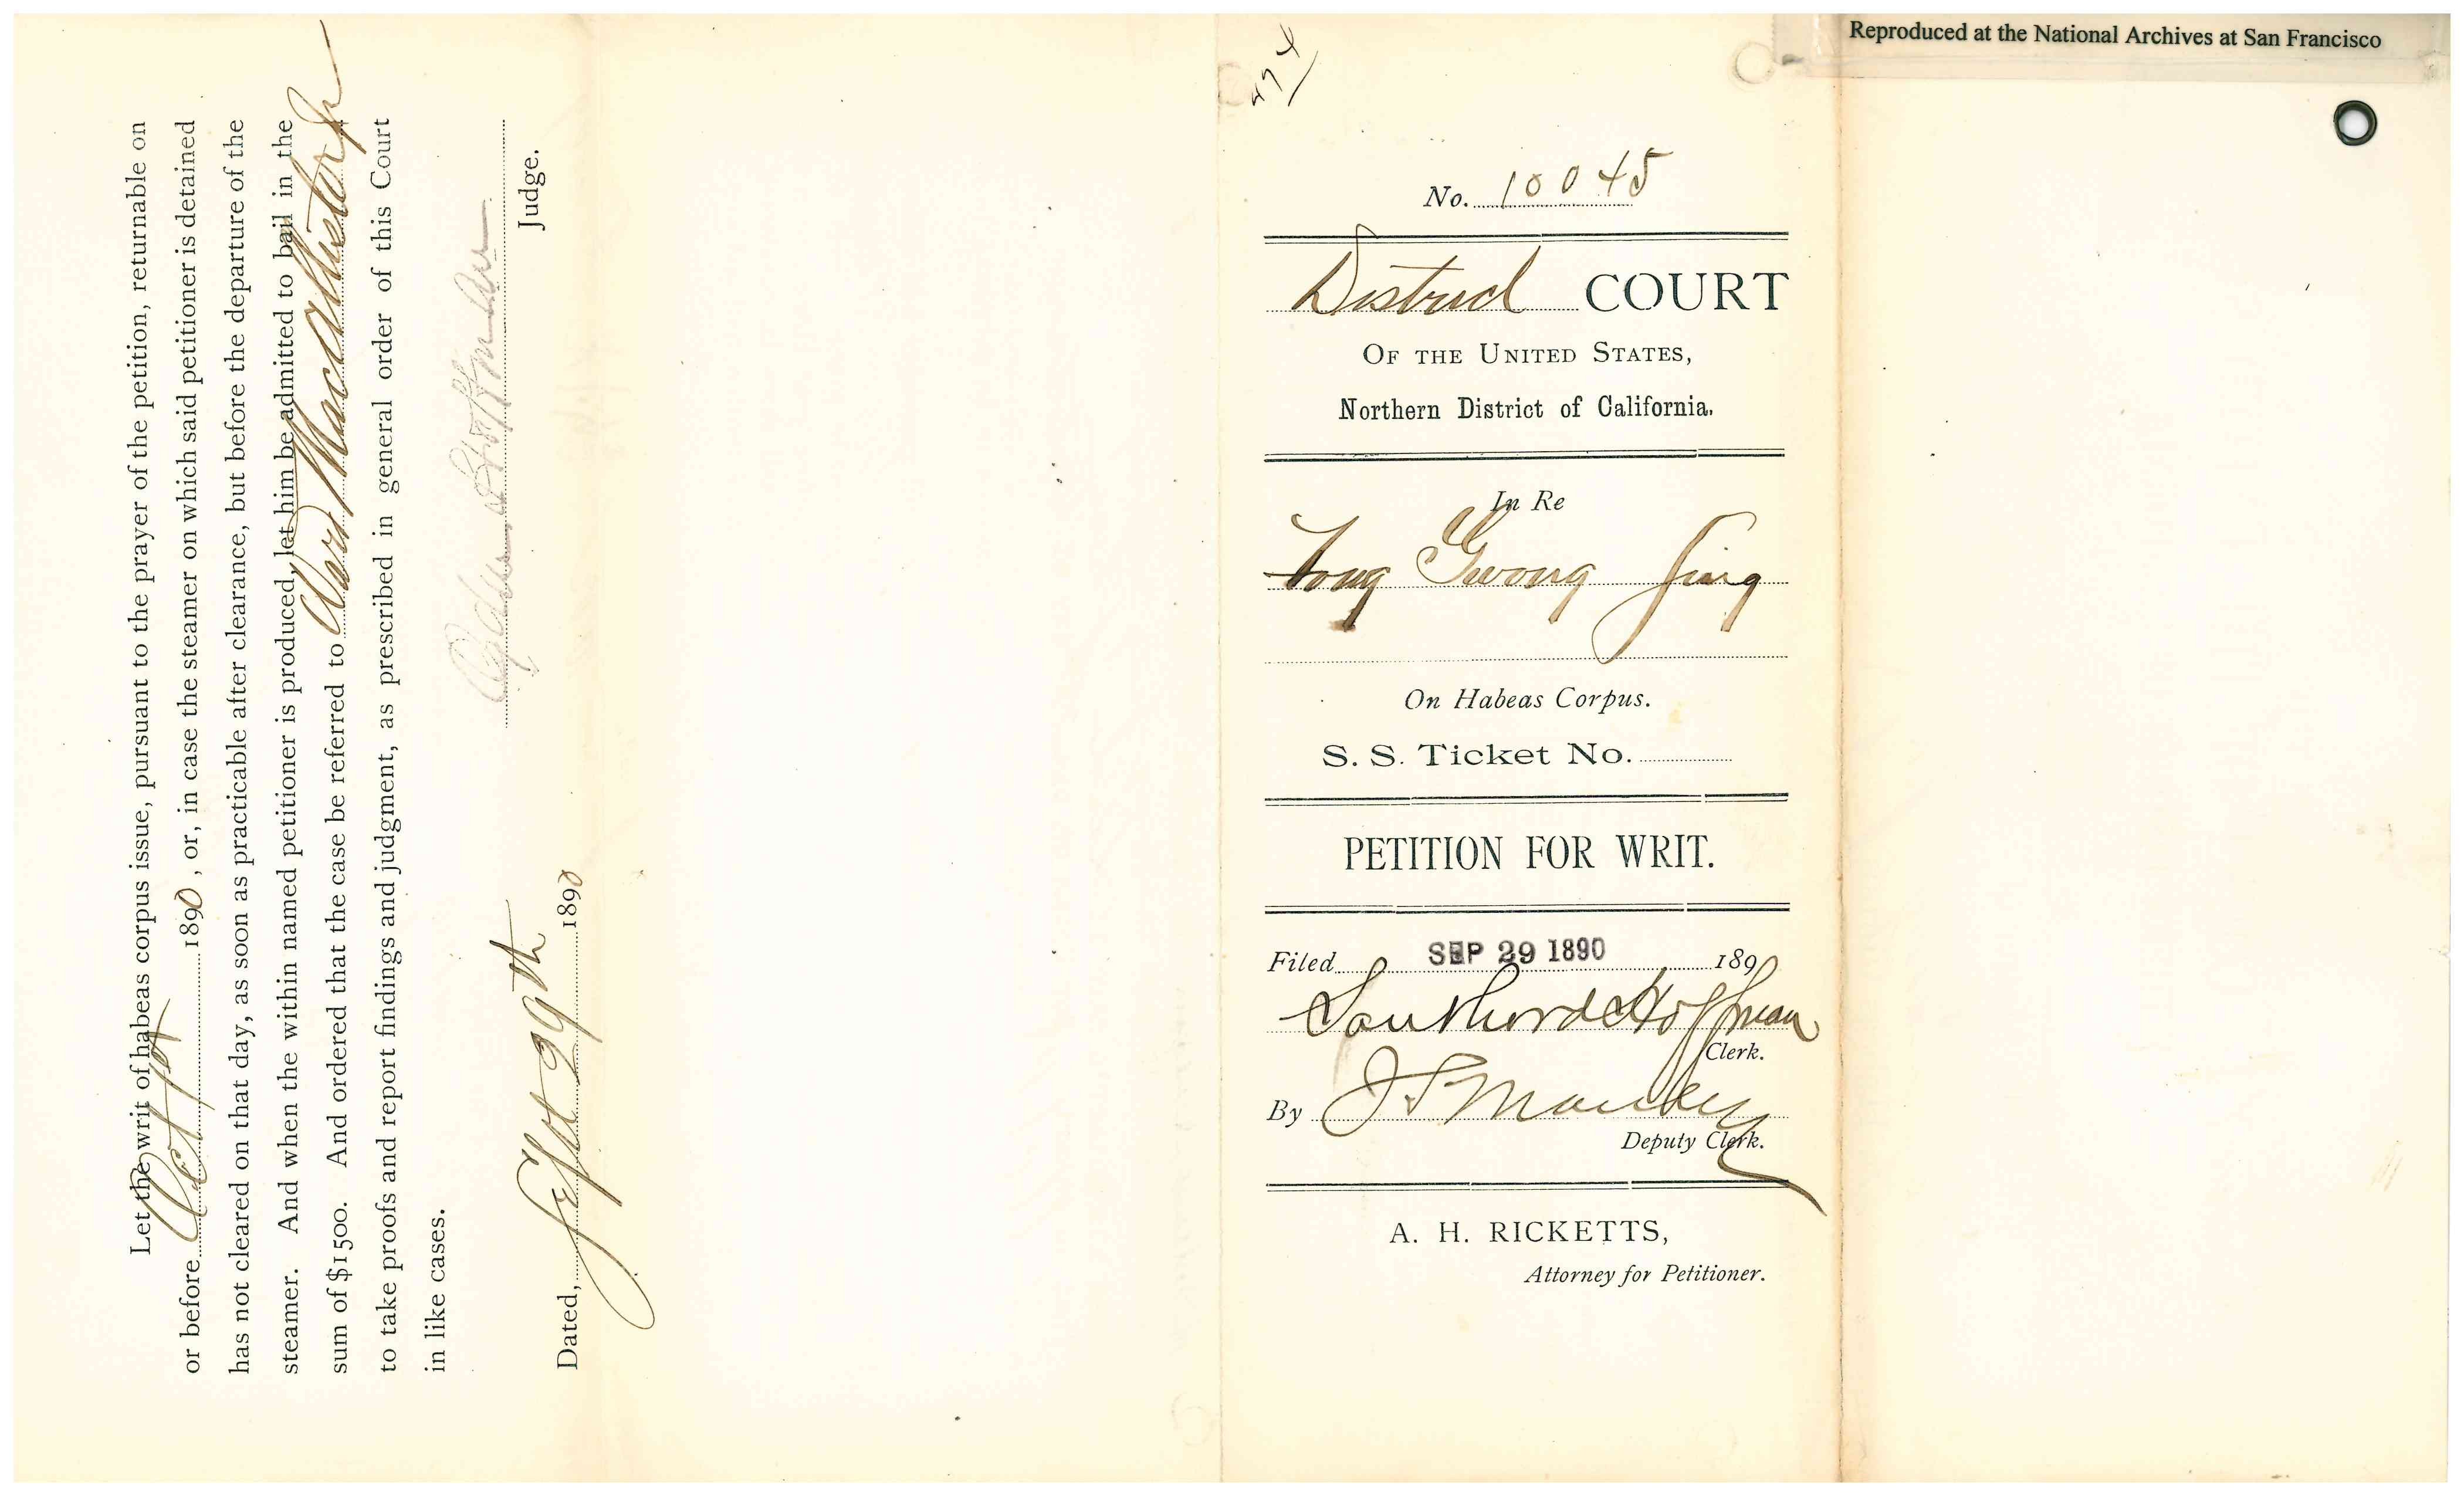 Let the writ of habeas corpus issue, pursuant to the prayer of the petition, returnable on
or before Oct 1st 1890, or, in case the steamer on which said petitioner is detained
has not cleared on that day, as soon as practicable after clearance, but before the departure of the
steamer. And when the within named petitioner is produced, let him be admitted to bail in the
sum of $1500. And ordered that the case be referred to Ward Macallister Jr
to take proofs and report findings and judgment, as prescribed in general order of this Court
in like cases.
Ogden Hoffman
Judge.
Dated, Sept 29th 1890
474
No. 10045
District COURT
OF THE UNITED STATES,
Northern District of California.
In Re
Gwong Sing
On Habeas Corpus.
S. S. Ticket No.
PETITION FOR WRIT.
Filed SEP 29 1890 189
Southard Hoffman
Clerk.
By
Deputy Clerk.
A. H. RICKETTS,
Attorney for Petitioner.
Reproduced at the National Archives at San Francisco